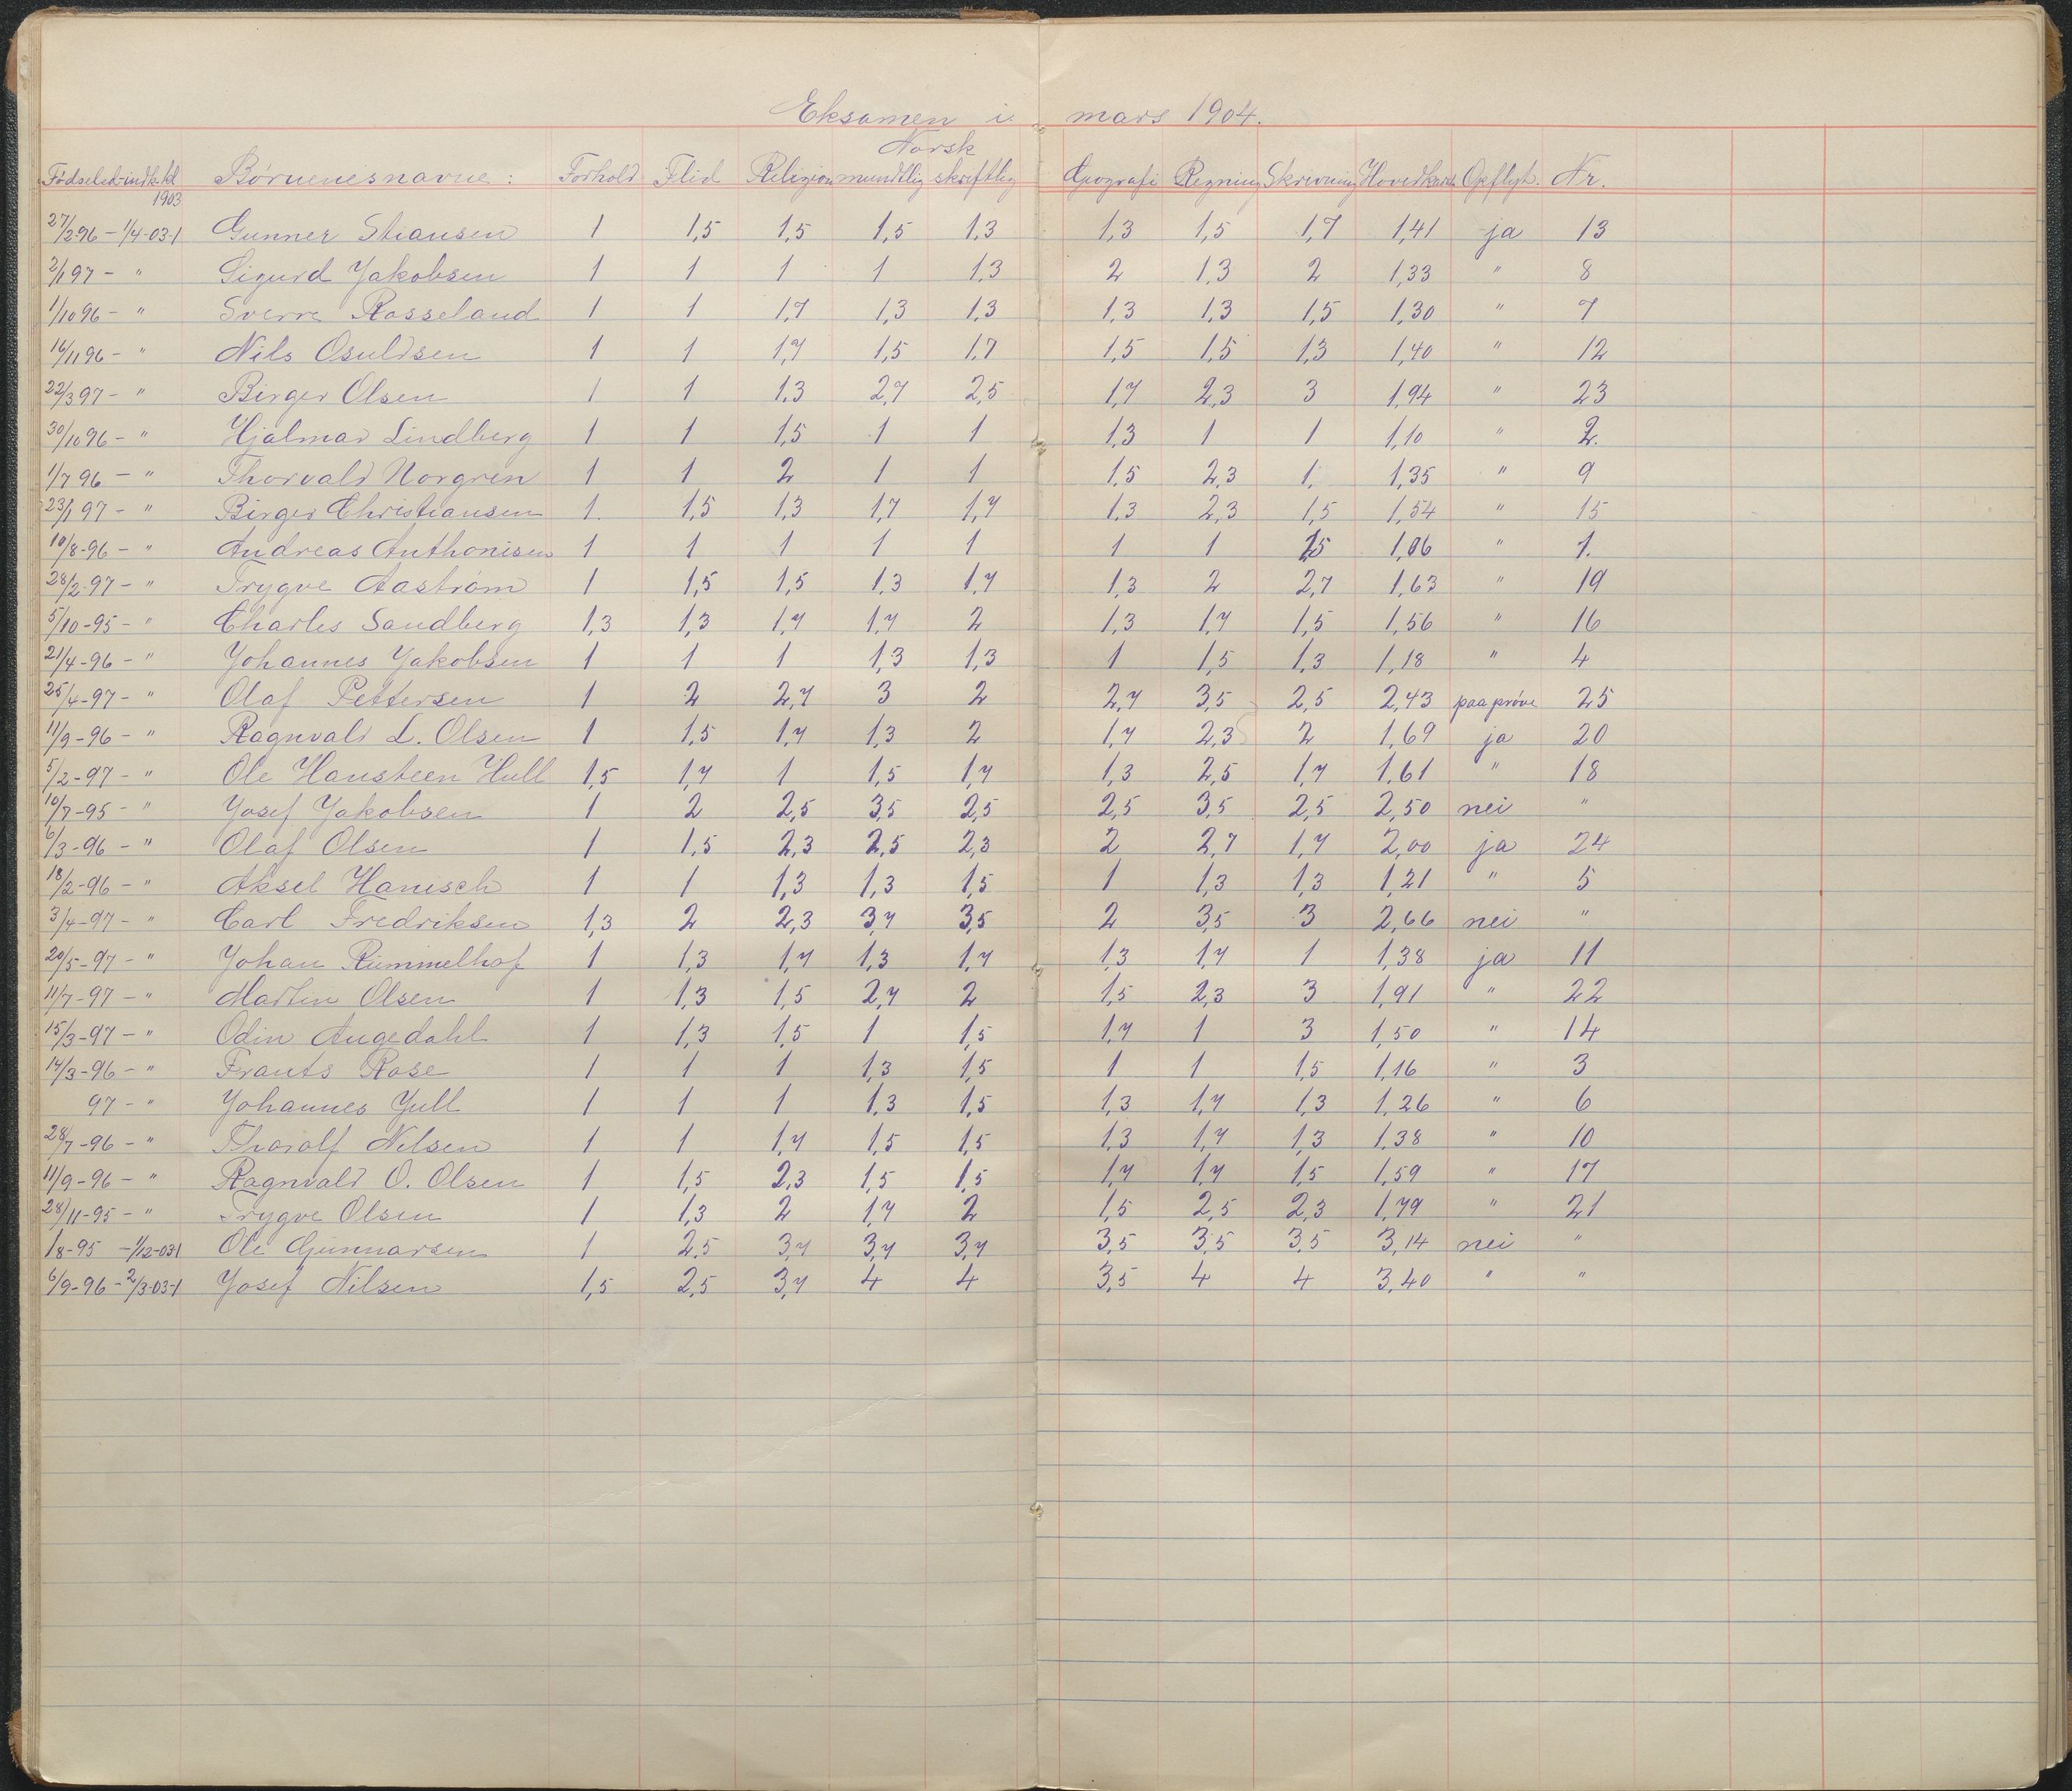 Eksamen i mars 1904.
Norsk
Fødselsd. indk. kl 1903 Børnenes navne: Forhold Flid Religion mundtlig skriftlig Geografi Regning Skrivning Hovedkar. Opflyt. Nr.
27/2-96 - 1/4-03-1 Gunner Stiansen 1 1,5 1,5 1,5 1,3 1,3 1,5 1,7 1,41 ja 13
2/1 97 - " Sigurd Jakobsen 1 1 1 1 1,3 2 1,3 2 1,33 " 8
1/10 96 - " Sverre Rosseland 1 1 1,7 1,3 1,3 1,3 1,3 1,5 1,30 " 7
16/11 96 - " Nils Osuldsen 1 1 1,7 1,5 1,7 1,5 1,5 1,3 1,40 " 12
22/3 97 - " Birger Olsen 1 1 1,3 2,7 2,5 1,7 2,3 3 1,94 " 23
30/10 96 - " Hjalmar Lindberg 1 1 1,5 1 1 1,3 1 1 1,10 " 2.
1/7 96 - " Thorvald Norgren 1 1 2 1 1 1,5 2,3 1, 1,35 " 9
23/1 97 - " Birger Christiansen 1. 1,5 1,3 1,7 1,7 1,3 2,3 1,5 1,54 " 15
10/8-96 - " Andreas Anthonisen 1 1 1 1 1 1 1 1,5 1,06 " 1.
28/2-97 - " Trygve Aastrøm 1 1,5 1,5 1,3 1,7 1,3 2 2,7 1,63 " 19
5/10-95 - " Charles Sandberg 1,3 1,3 1,7 1,7 2 1,3 1,7 1,5 1,56 " 16
21/4-96 - " Johannes Jakobsen 1 1 1 1,3 1,3 1 1,5 1,3 1,18 " 4
25/4-97 - " Olaf Pettersen 1 2 2,7 3 2 2,7 3,5 2,5 2,43 paa prøve 25
11/9-96 - " Ragnvald L. Olsen 1 1,5 1,7 1,3 2 1,7 2,3 2 1,69 ja 20
5/2-97 - " Ole Hansteen Hull 1,5 1,7 1 1,5 1,7 1,3 2,5 1,7 1,61 " 18
10/7-95 - " Josef Jakobsen 1 2 2,5 3,5 2,5 2,5 3,5 2,5 2,50 nei "
6/3-96 - " Olaf Olsen 1 1,5 2,3 2,5 2,3 2 2,7 1,7 2,00 ja 24
18/2-96 - " Aksel Hanisch 1 1 1,3 1,3 1,5 1 1,3 1,3 1,21 " 5
3/4-97 - " Carl Fredriksen 1,3 2 2,3 3,7 3,5 2 3,5 3 2,66 nei "
20/5-97 - " Johan Rümmelhof 1 1,3 1,7 1,3 1,7 1,3 1,7 1 1,38 ja 11
11/7-97 - " Martin Olsen 1 1,3 1,5 2,7 2 1,5 2,3 3 1,91 " 22
15/3-97 - " Odin Augedahl 1 1,3 1,5 1 1,5 1,7 1 3 1,50 " 14
14/3-96 - " Frants Rose 1 1 1 1,3 1,5 1 1 1,5 1,16 " 3
97 - " Johannes Jull 1 1 1 1,3 1,5 1,3 1,7 1,3 1,26 " 6
28/7-96 - " Tharalf Nilsen 1 1 1,7 1,5 1,5 1,3 1,7 1,3 1,38 " 10
11/9-96 - " Ragnvald O. Olsen 1 1,5 2,3 1,5 1,5 1,7 1,7 1,5 1,59 " 17
28/11-95 - " Trygve Olsen 1 1,3 2 1,7 2 1,5 2,5 2,3 1,79 " 21
1/8-95 - 1/12-03-1 Ole Gunnarsen 1 2,5 3,7 3,7 3,7 3,5 3,5 3,5 3,14 nei "
6/9-96 - 2/3-03-1 Josef Nilsen 1,5 2,5 3,7 4 4 3,5 4 4 3,40 " "